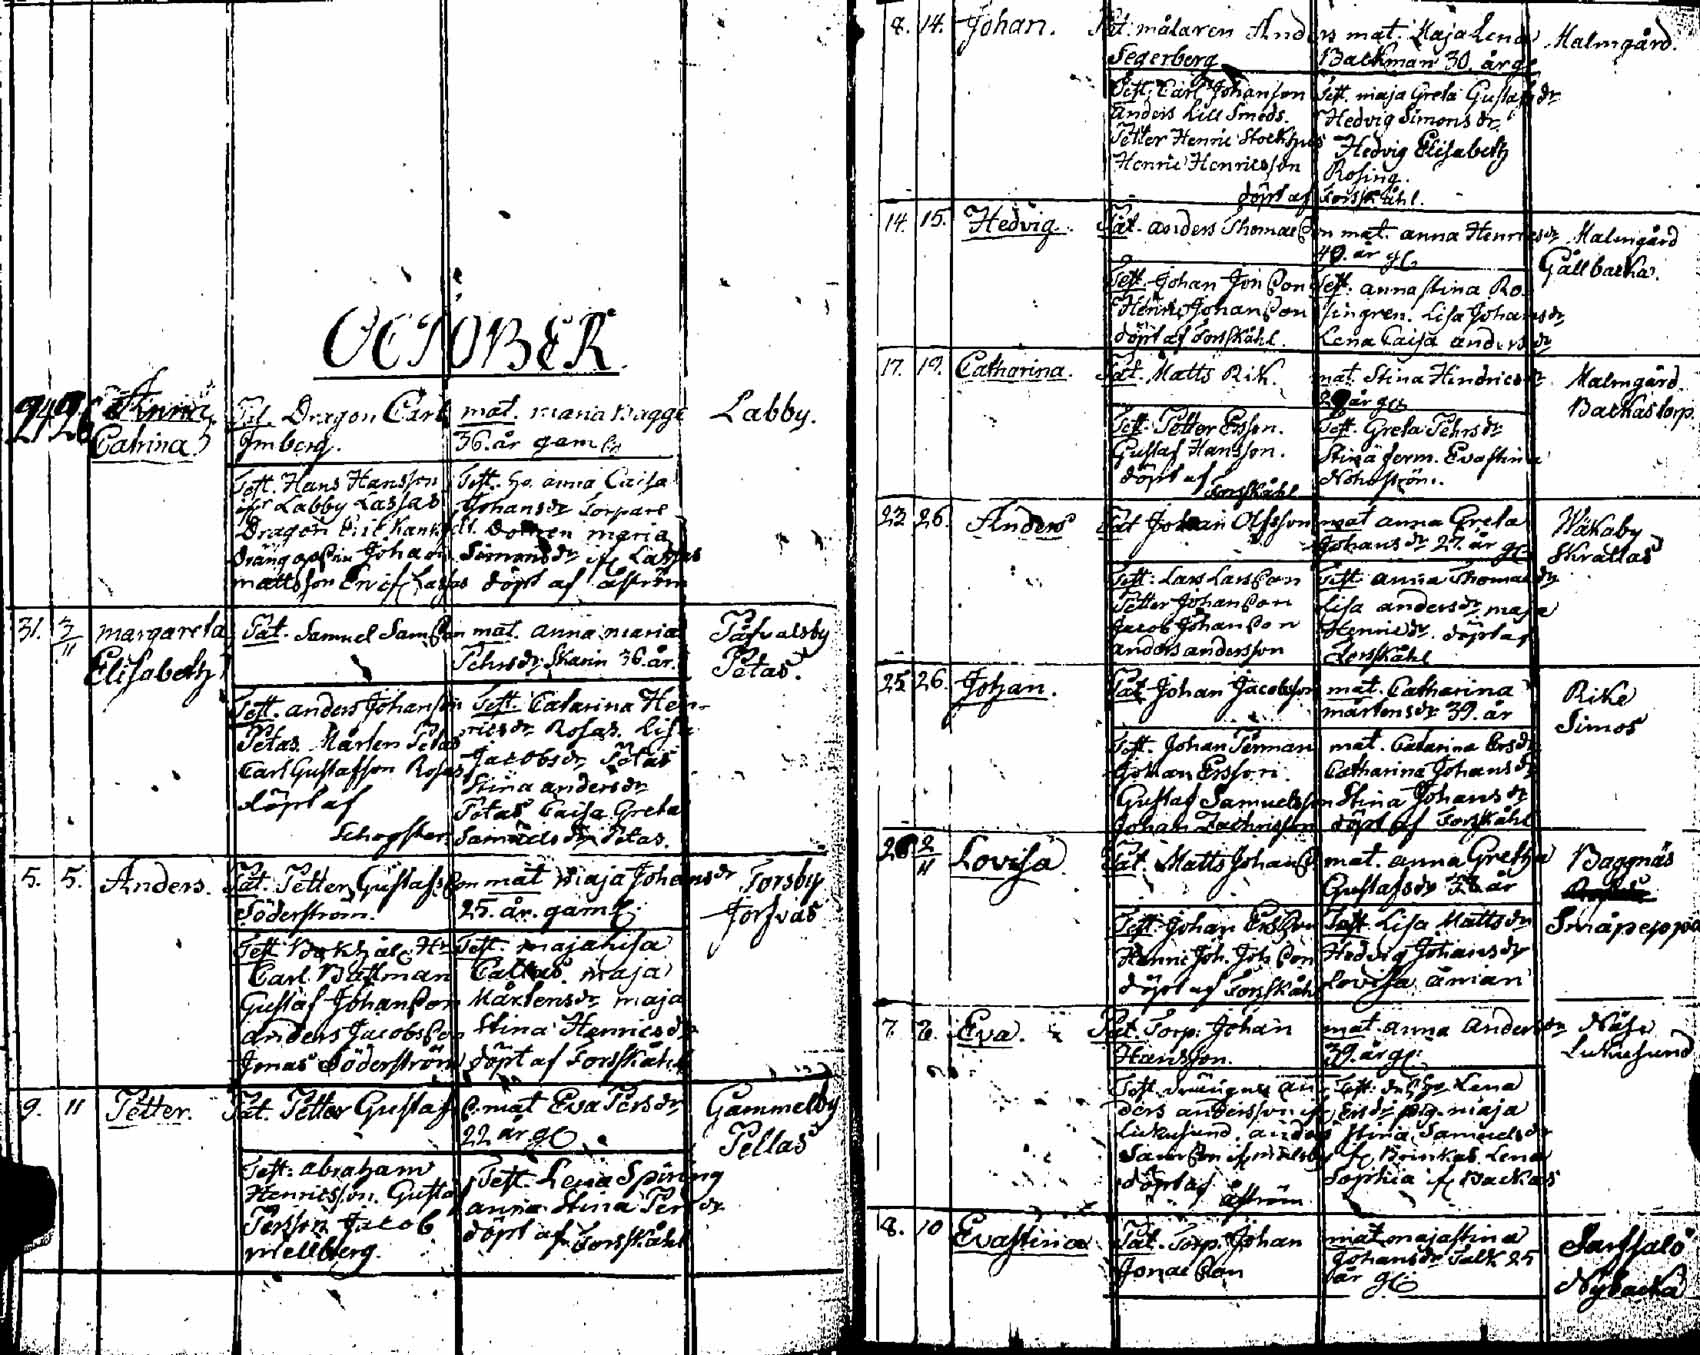 OCTOBER
24 26 Anna
Catrina
Pat. Dragon Carl
Imberg.
mat. maria Bagge
36. år gaml
Labby.
Test. Hans Hansson
Labby Lassas
Dragon Eric
Johan
mattsson
Test. anna Caisa
Johansdr Torpare
maria
Simonsdr Lassas
döpt af åström
31. 3/11 margareta
Elisabeth
Pat. Samuel Samson
mat. anna maria
Pehrsdr Skarin 36. år.
Petas.
Test. anders Johanson
Petas. Mårten Petas
Carl Gustafsson Rosas
döpt af
Test. Catarina Hen-
ricsdr Rosas. Lisa
Jacobsdr Petas
Stina andersdr
Petas Caisa Greta
Samuelsdr Petas.
5. 5. Anders.
Pat. Petter Gustafsson
Söderström.
mat Maja Johansdr
25. år. gaml
Torsby
Forsvas
Test.
Carl Baltman
Gustaf Johanson
anders Jacobsson
Jonas Söderström
Test. majalisa
maja
Mårtensdr maja
Stina Henricsdr
döpt af Forsskåhl
9. 11 Petter.
Pat. Petter Gustafs
mat Eva Persdr
22 år gl
Gammelby
Pellas
Test. abraham
Henricsson Gustaf
Persson Jacob
mellberg.
Test. Lena Spiring
anna Stina Persdr
döpt af Forsskåhl
8. 14. Johan.
Pat. målaren Anders
Segerberg
mat. Maja Lena
Backman 30. år gl
Malmgård.
Test. Carl Johanson
anders Lill Smeds.
Petter Henric
Henric Henricsson
Test. maja Greta Gustafsdr
Hedvig Simonsdr
Hedvig Elisabeth
Rosing.
döpt af Forsskåhl.
14. 15. Hedvig.
Pat. anders Thomasson
mat. anna Henricsdr
40. år gl
Malmgård
Gällbacka.
Test. Johan Jonsson
Henric Johanson
döpt af Forsskåhl.
Test. anna Stina Ro
singren. Lisa Johansdr
Lena Caisa andersdr
17. 19. Catharina.
Pat. Matts Rik.
mat. Stina Hendricsdr
år gl
Malmgård
Backastorp.
Test. Petter Ersson.
Gustaf Hansson.
döpt af
Forsskåhl
Test. Greta Pehrsdr
Stina ferm. Evastina
23 26. Anders
Pat Johan Olsson
mat anna Greta
Johansdr 27. år gl
Skrattas
Test. Lars Larsson
Petter Johanson
Jacob Johanson
anders andersson
Test. anna Thomasdr
Lisa andersdr maja
Henricsdr. döpt af
Forsskåhl
25. 26. Johan.
Pat Johan Jacobsson
mat. Catharina
mårtensdr 39. år
Rike
Simos
Test. Johan Perman
Johan Ersson.
Gustaf Samuelsson
Johan Zachrisson
mat. Catarina Ersdr
Catharina Johansdr
Stina Johansdr
döpt af Forsskåhl
2/11 Lovisa
Pat. Matts Johans
mat. anna Greta
Gustafsdr år
Baggnäs
Småpeppa
Test. Johan Ersson
Henric Joh. Johson
döpt af Forsskåhl
Test Lisa Mattsdr
Hedvig Johansdr
Lovisa Åman
7. 8. Eva.
Pat. Torp. Johan
Hansson.
mat. anna andersdr
39. år gl.
Näse
Test. drängne an
ders andersson
anders
döpt af
åström
Test. Lena
Ersdr pig. maja
Stina Samuelsdr
Brinkas. Lena
Sophia Backas
8. 10 Evastina
Pat. Torp. Johan
Jonasson
mat majastina
Johansdr Falk 25
år gl
Sarfsalö
Nybacka